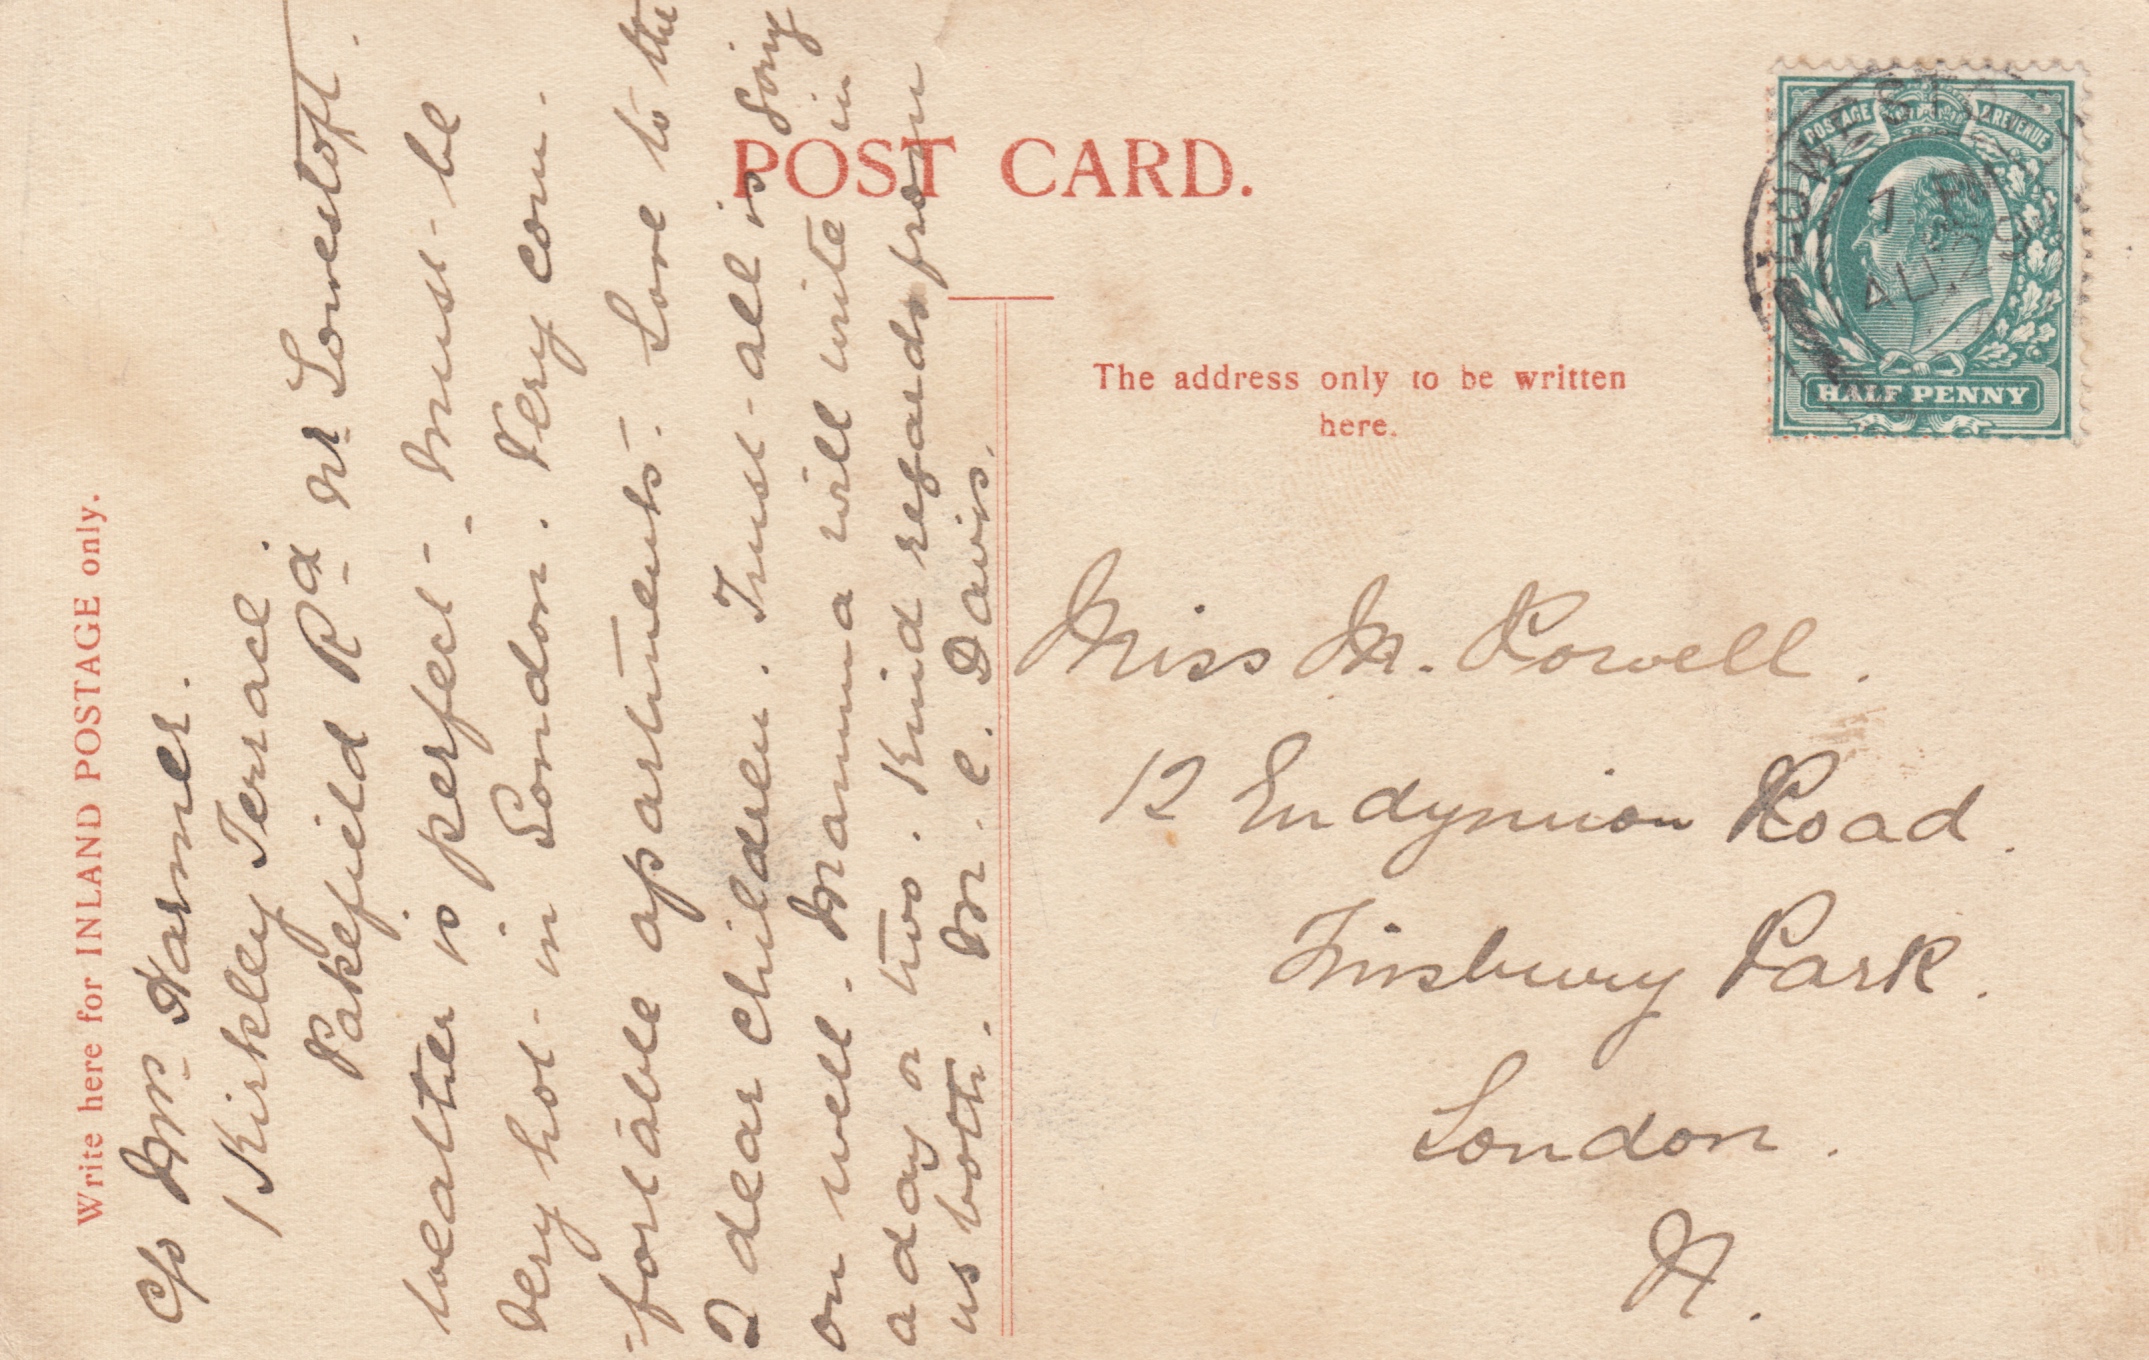 Write here for INLAND POSTAGE only.
c/o Mrs Harmer.
1 Kirkley Terrace.
Pakefield Rd Nr Lowestoft.
weather is perfect - must be
very hot in London. Very com-
-fortable apartments. Love to the
2 dear children. Trust all is going
on well. Mamma will write in
a day or two. Kind regards from
us both. M. C. Davis.
POST CARD.
The address only to be written
here.
POSTAGE & REVENUE
HALF PENNY
LOWEST
AU
Miss M. Powell.
12 Endymion Road.
Finsbury Park.
London.
N.